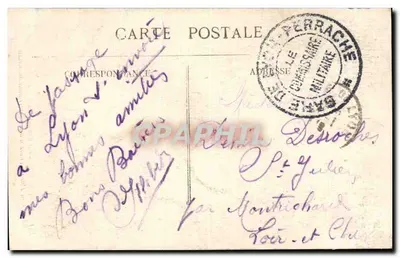 CARTE POSTALE
CORRESPONDANCE
ADRESSE
GARE DE LYON-PERRACHE
LE
COMMISSAIRE
MILITAIRE
De passage
a Lyon t'envoie
mes bonnes amitiés
Bons Baisers
Desroches
St Julien
par Montrichard
Loir et Cher